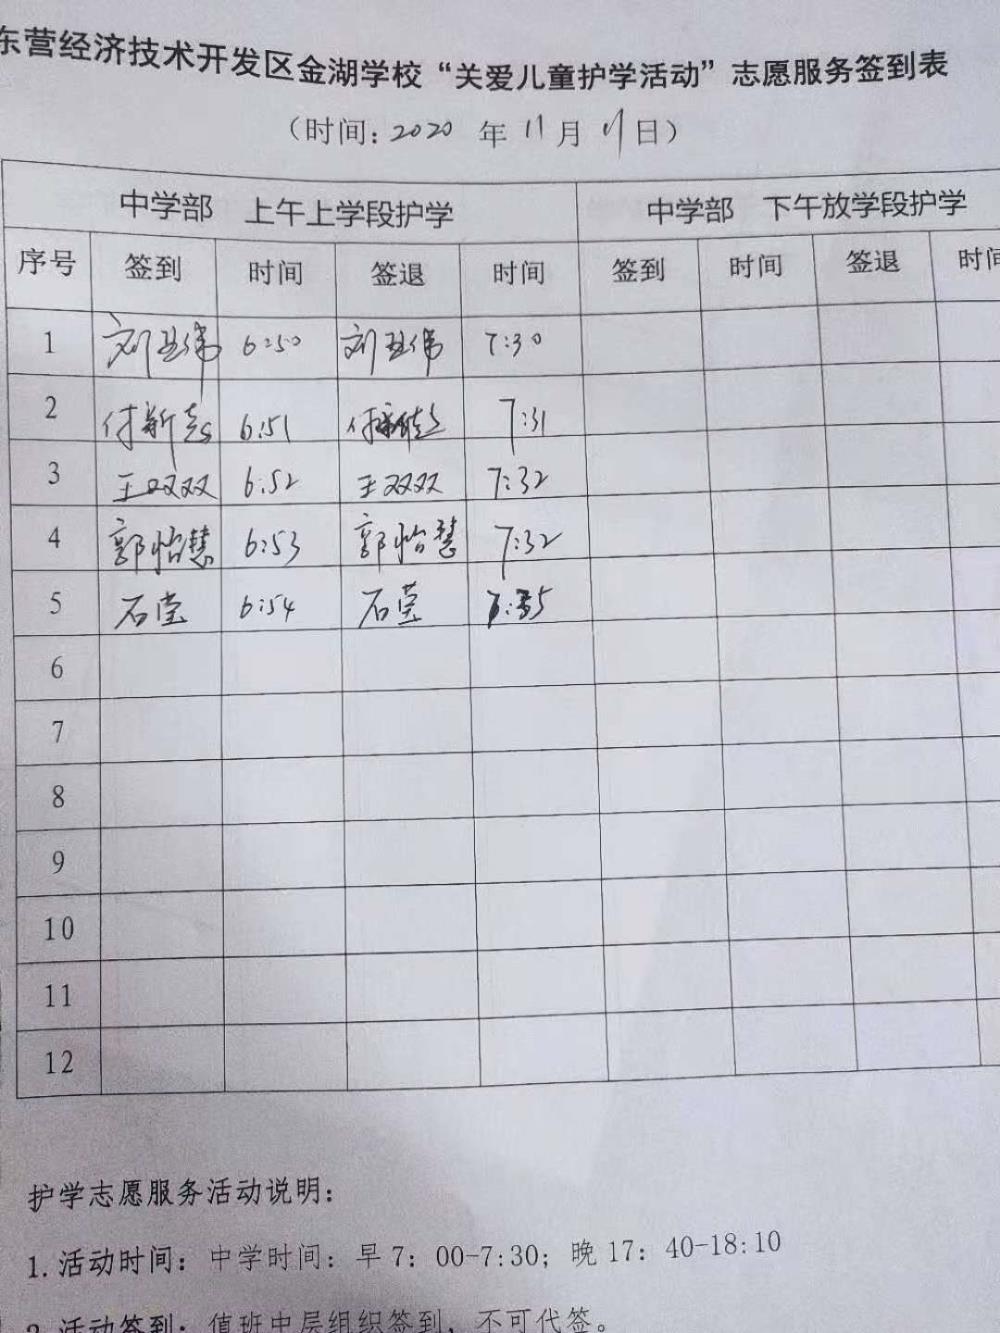 东营经济技术开发区金湖学校“关爱儿童护学活动”志愿服务签到表
（时间：2020 年 11 月 日）
中学部 上午上学段护学 中学部 下午放学段护学
序号 签到 时间 签退 时间 签到 时间 签退 时间
1 刘亚伟 6:50 刘亚伟 7:30
2 付新 6:51 付新 7:31
3 王双双 6:52 王双双 7:32
4 郭怡慧 6:53 郭怡慧 7:32
5 石莹 6:54 石莹
6
7
8
9
10
11
12
护学志愿服务活动说明：
1.活动时间：中学时间：早7：00-7:30；晚17：40-18:10
2.活动签到：值班中层组织签到，不可代签。